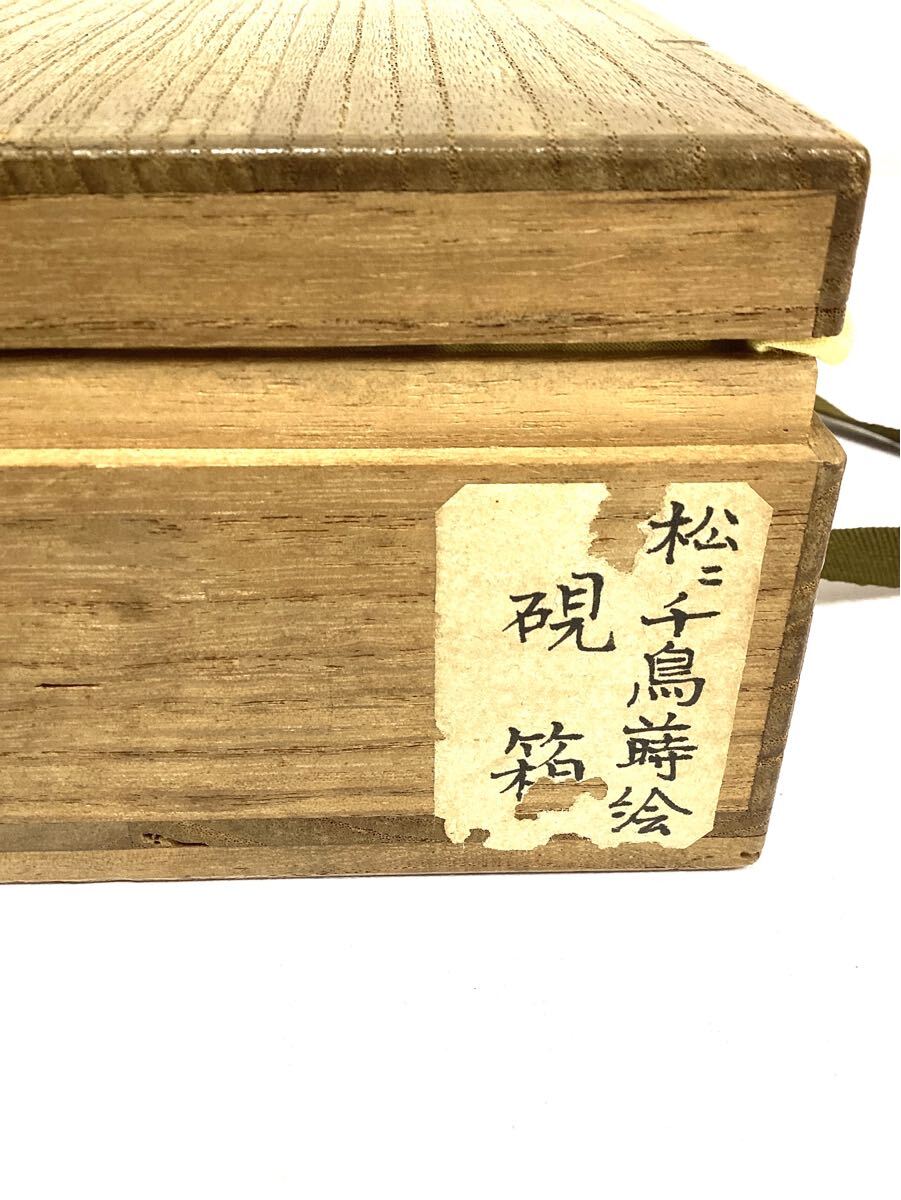 松ニ千鳥蒔絵
硯箱